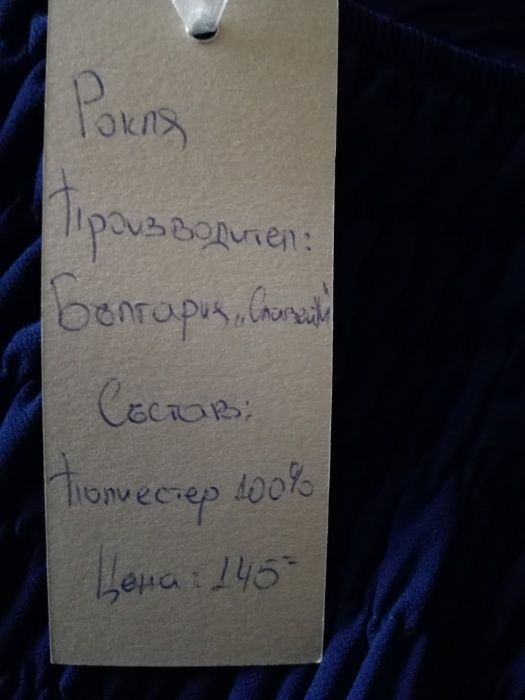 Рокля
Производител:
България „Славей“
Състав:
Полиестер 100%
Цена: 145=